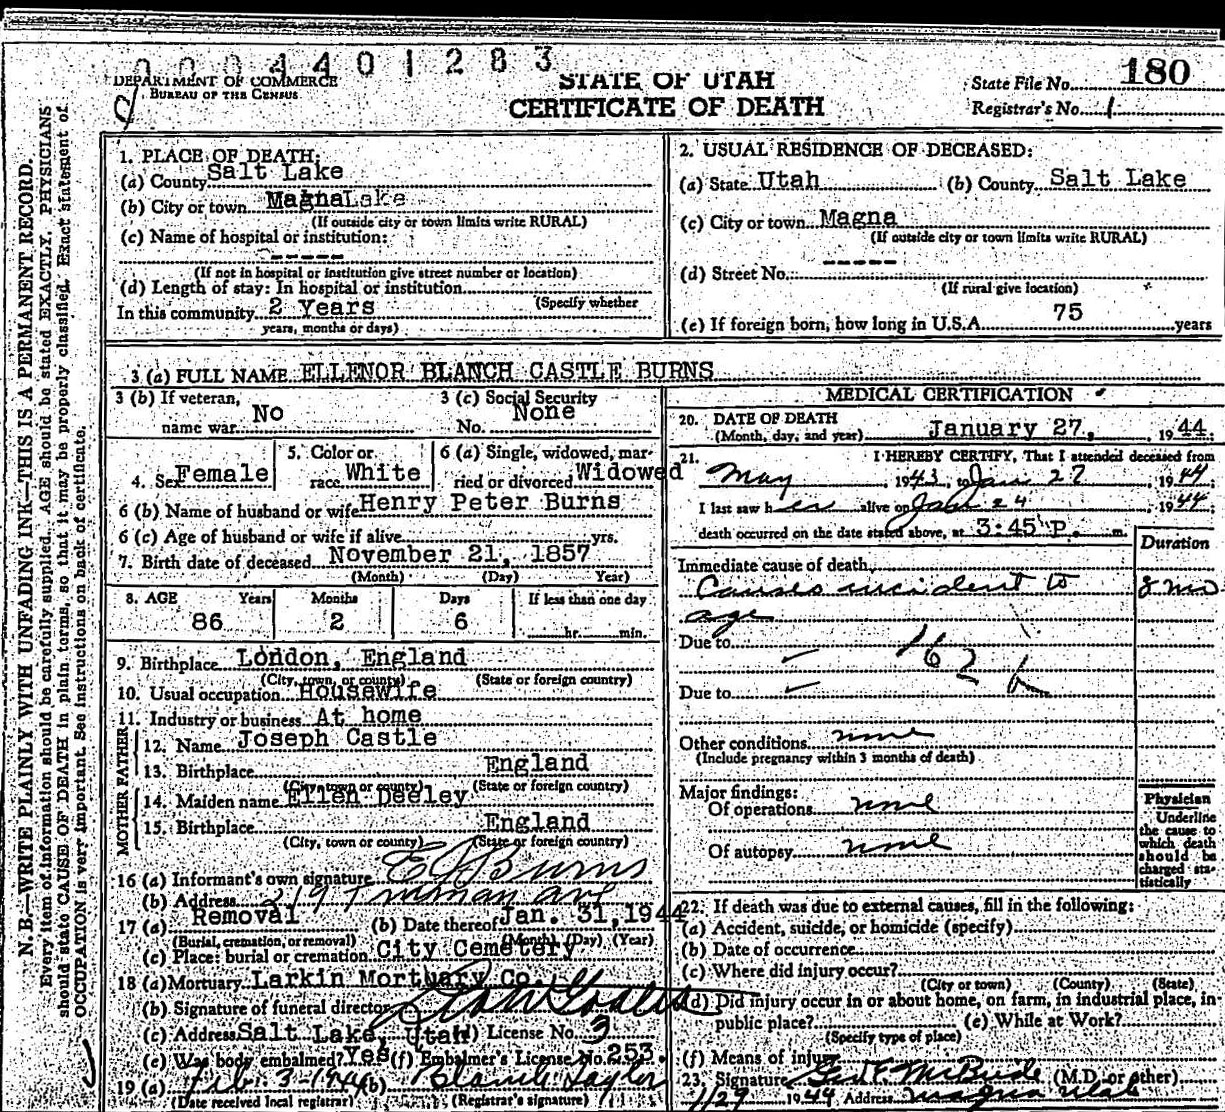 0004401283
DEPARTMENT OF COMMERCE
BUREAU OF THE CENSUS
STATE OF UTAH
CERTIFICATE OF DEATH
State File No. 180
Registrar's No. 1
N. B.—WRITE PLAINLY WITH UNFADING INK—THIS IS A PERMANENT RECORD.
Every item of information should be carefully supplied. AGE should be stated EXACTLY. PHYSICIANS
should state CAUSE OF DEATH in plain terms, so that it may be properly classified. Exact statement of
OCCUPATION is very important. See instructions on back of certificate.
1. PLACE OF DEATH:
(a) County Salt Lake
(b) City or town Magna Lake
(If outside city or town limits write RURAL)
(c) Name of hospital or institution:
-----
(If not in hospital or institution give street number or location)
(d) Length of stay: In hospital or institution
(Specify whether
In this community 2 Years
years, months or days)
2. USUAL RESIDENCE OF DECEASED:
(a) State Utah (b) County Salt Lake
(c) City or town Magna
(If outside city or town limits write RURAL)
(d) Street No. -----
(If rural give location)
(e) If foreign born, how long in U.S.A. 75 years
3 (a) FULL NAME ELLENOR BLANCH CASTLE BURNS
3 (b) If veteran, name war No
3 (c) Social Security No. None
4. Sex Female
5. Color or race White
6 (a) Single, widowed, married or divorced Widowed
6 (b) Name of husband or wife Henry Peter Burns
6 (c) Age of husband or wife if alive yrs.
7. Birth date of deceased November 21, 1857
(Month) (Day) Year)
8. AGE Years Months Days If less than one day
86 2 6 hr. min.
9. Birthplace London, England
(City, town, or county) (State or foreign country)
10. Usual occupation Housewife
11. Industry or business At home
FATHER
12. Name Joseph Castle
13. Birthplace England
(City, town or county) (State or foreign country)
MOTHER
14. Maiden name Ellen Deeley
15. Birthplace England
(City, town or county) (State or foreign country)
16 (a) Informant's own signature E J Burns
(b) Address
17 (a) Removal (b) Date thereof Jan. 31, 1944
(Burial, cremation, or removal) (Month) (Day) (Year)
(c) Place: burial or cremation City Cemetery
18 (a) Mortuary Larkin Mortuary Co.
(b) Signature of funeral director
(c) Address Salt Lake, Utah (d) License No. 3
(e) Was body embalmed? Yes (f) Embalmer's License No. 253.
19 (a) Feb. 3-1944 (b) Blanch Taylor
(Date received local registrar) (Registrar's signature)
MEDICAL CERTIFICATION
20. DATE OF DEATH
(Month, day, and year) January 27, 1944.
21. I HEREBY CERTIFY, That I attended deceased from
May, 1943, to Jan 27, 1944
I last saw her alive on Jan 24, 1944.
death occurred on the date stated above, at 3:45 P. m.
Duration
Immediate cause of death
Causes incident to 8 mo
age
Due to 162 b
Due to
Other conditions none
(Include pregnancy within 3 months of death)
Major findings:
Of operations none
Of autopsy none
Physician
Underline
the cause to
which death
should be
charged sta-
tistically
22. If death was due to external causes, fill in the following:
(a) Accident, suicide, or homicide (specify)
(b) Date of occurrence
(c) Where did injury occur?
(City or town) (County) (State)
(d) Did injury occur in or about home, on farm, in industrial place, in
public place? (e) While at Work?
(Specify type of place)
(f) Means of injury
23. Signature McBride (M.D. or other)
1/29 1944 Address Magna Utah